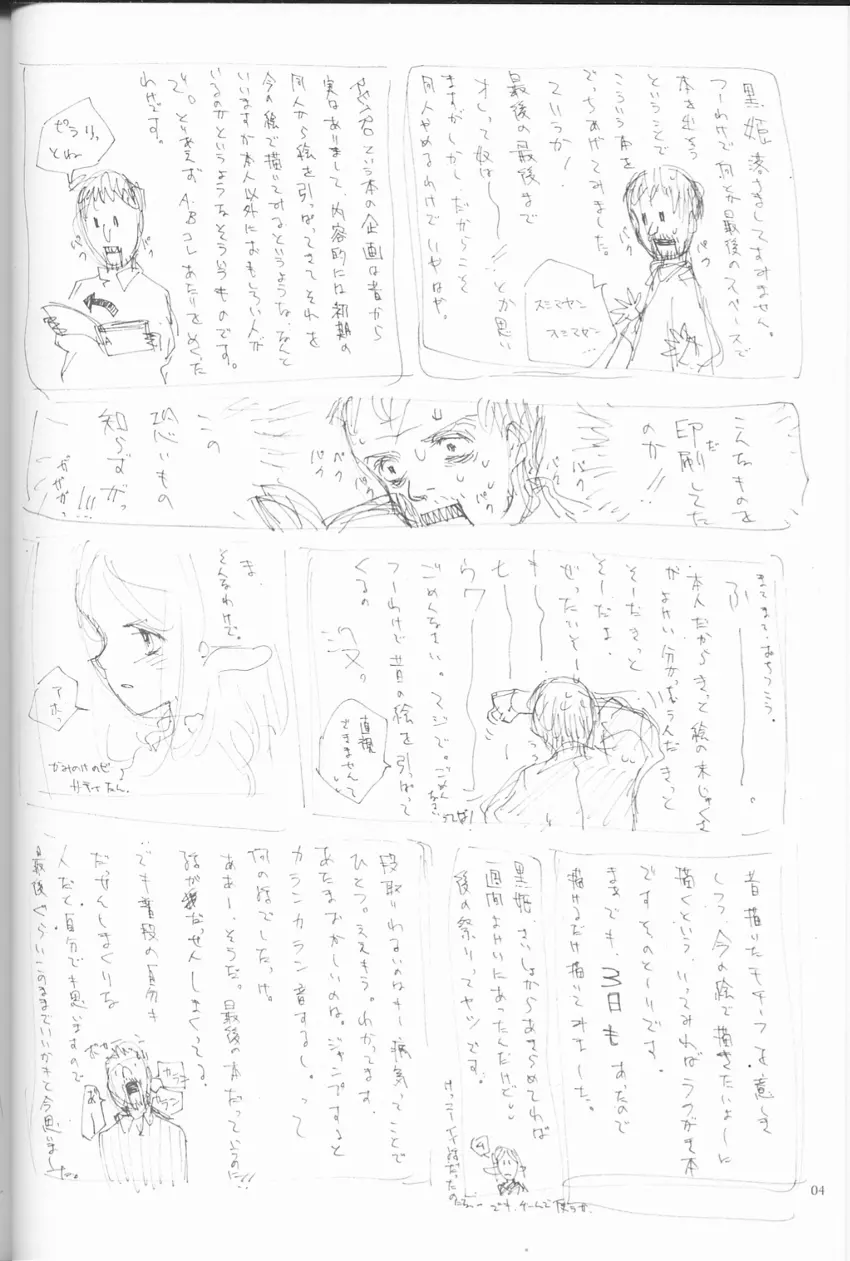 黒姫落ちましてすみません。
つーわけで何とか最後のスペースで
本を出そう
ということで
こういう本を
でっちあげてみました。
ていうか！
最後の最後まで
オレって奴は――!!とか思い
ますがしかし、だからこそ
同人やめるわけでいやはや。
スミマセン
スミマセン
パク
パク
という本の企画は昔から
実はありまして、内容的には初期の
同人から絵を引っぱってきてそれを
今の絵で描いてみるというような、なんと
いいますか本人以外におもしろい人が
いるのかというようなそういうものです。
で。とりあえず A・Bコレあたりをめくった
わけです。
ピラリっ
とね
パク
パク
A
こんなものを
印刷してた
だ
のか!!
パク
パク
パク
パク
この
恥じいもの
知らずがっ
ががががっ!!!
まてまて、おちつこう。
ふ――――。
本人だからきっと絵の未じゅくさ
がよけい分かっちゃうんだきっと
そーだきっと
そーだよ、
ぜったいそー
も――
ごめんなさい。マジで。ごめんなさいってば！
つーわけで昔の絵を引っぱって
くるの
没っ
直視
できませんて
ま、
そんなわけで。
アホっ
昔描いたモチーフを意しき
しつつ、今の絵で描きたいよーに
描くという、いってみればらくがき本
です。そのとーりです。
まあでも、3日もあったので
描けるだけ描いてみました。
黒姫、さいしょからあきらめてれば
一週間よけいにあったんだけど。
後の祭りってヤツです。
でも、ゲームで使うか。
段取りわるいのはもー病気ってことで
ひとつ。ええもう。わかってます。
あたまおかしいのは。ジャンプすると
カランカラン音するし。って
何の話でしたっけ。
ああー、そうだ。最後の本だっていうのに!!
話がだっせんしまくってる。
でも普段の自分も
だっせんしまくりな
人だと自分でも思いますので
最後ぐらいこのままでいいかなと今思いました。
カラン
カラン
あ
04